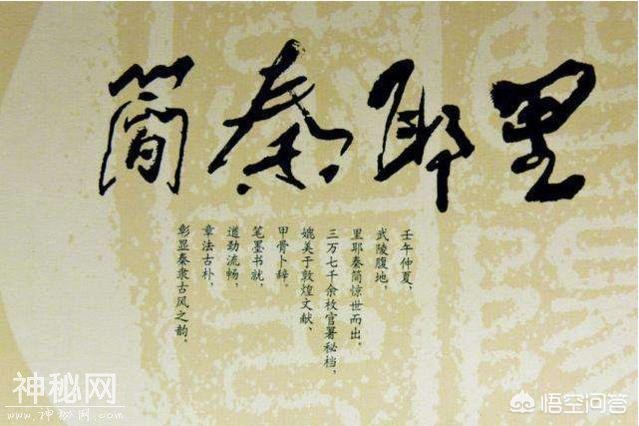 里耶秦简
壬午仲夏，
武陵腹地，
里耶秦简惊世而出。
三万七千余枚官署秘档，
媲美于敦煌文献、
甲骨卜辞。
笔墨书就，
遒劲流畅，
章法古朴，
彰显秦隶古风之韵。
神秘网
www.神秘网.com
悟空问答